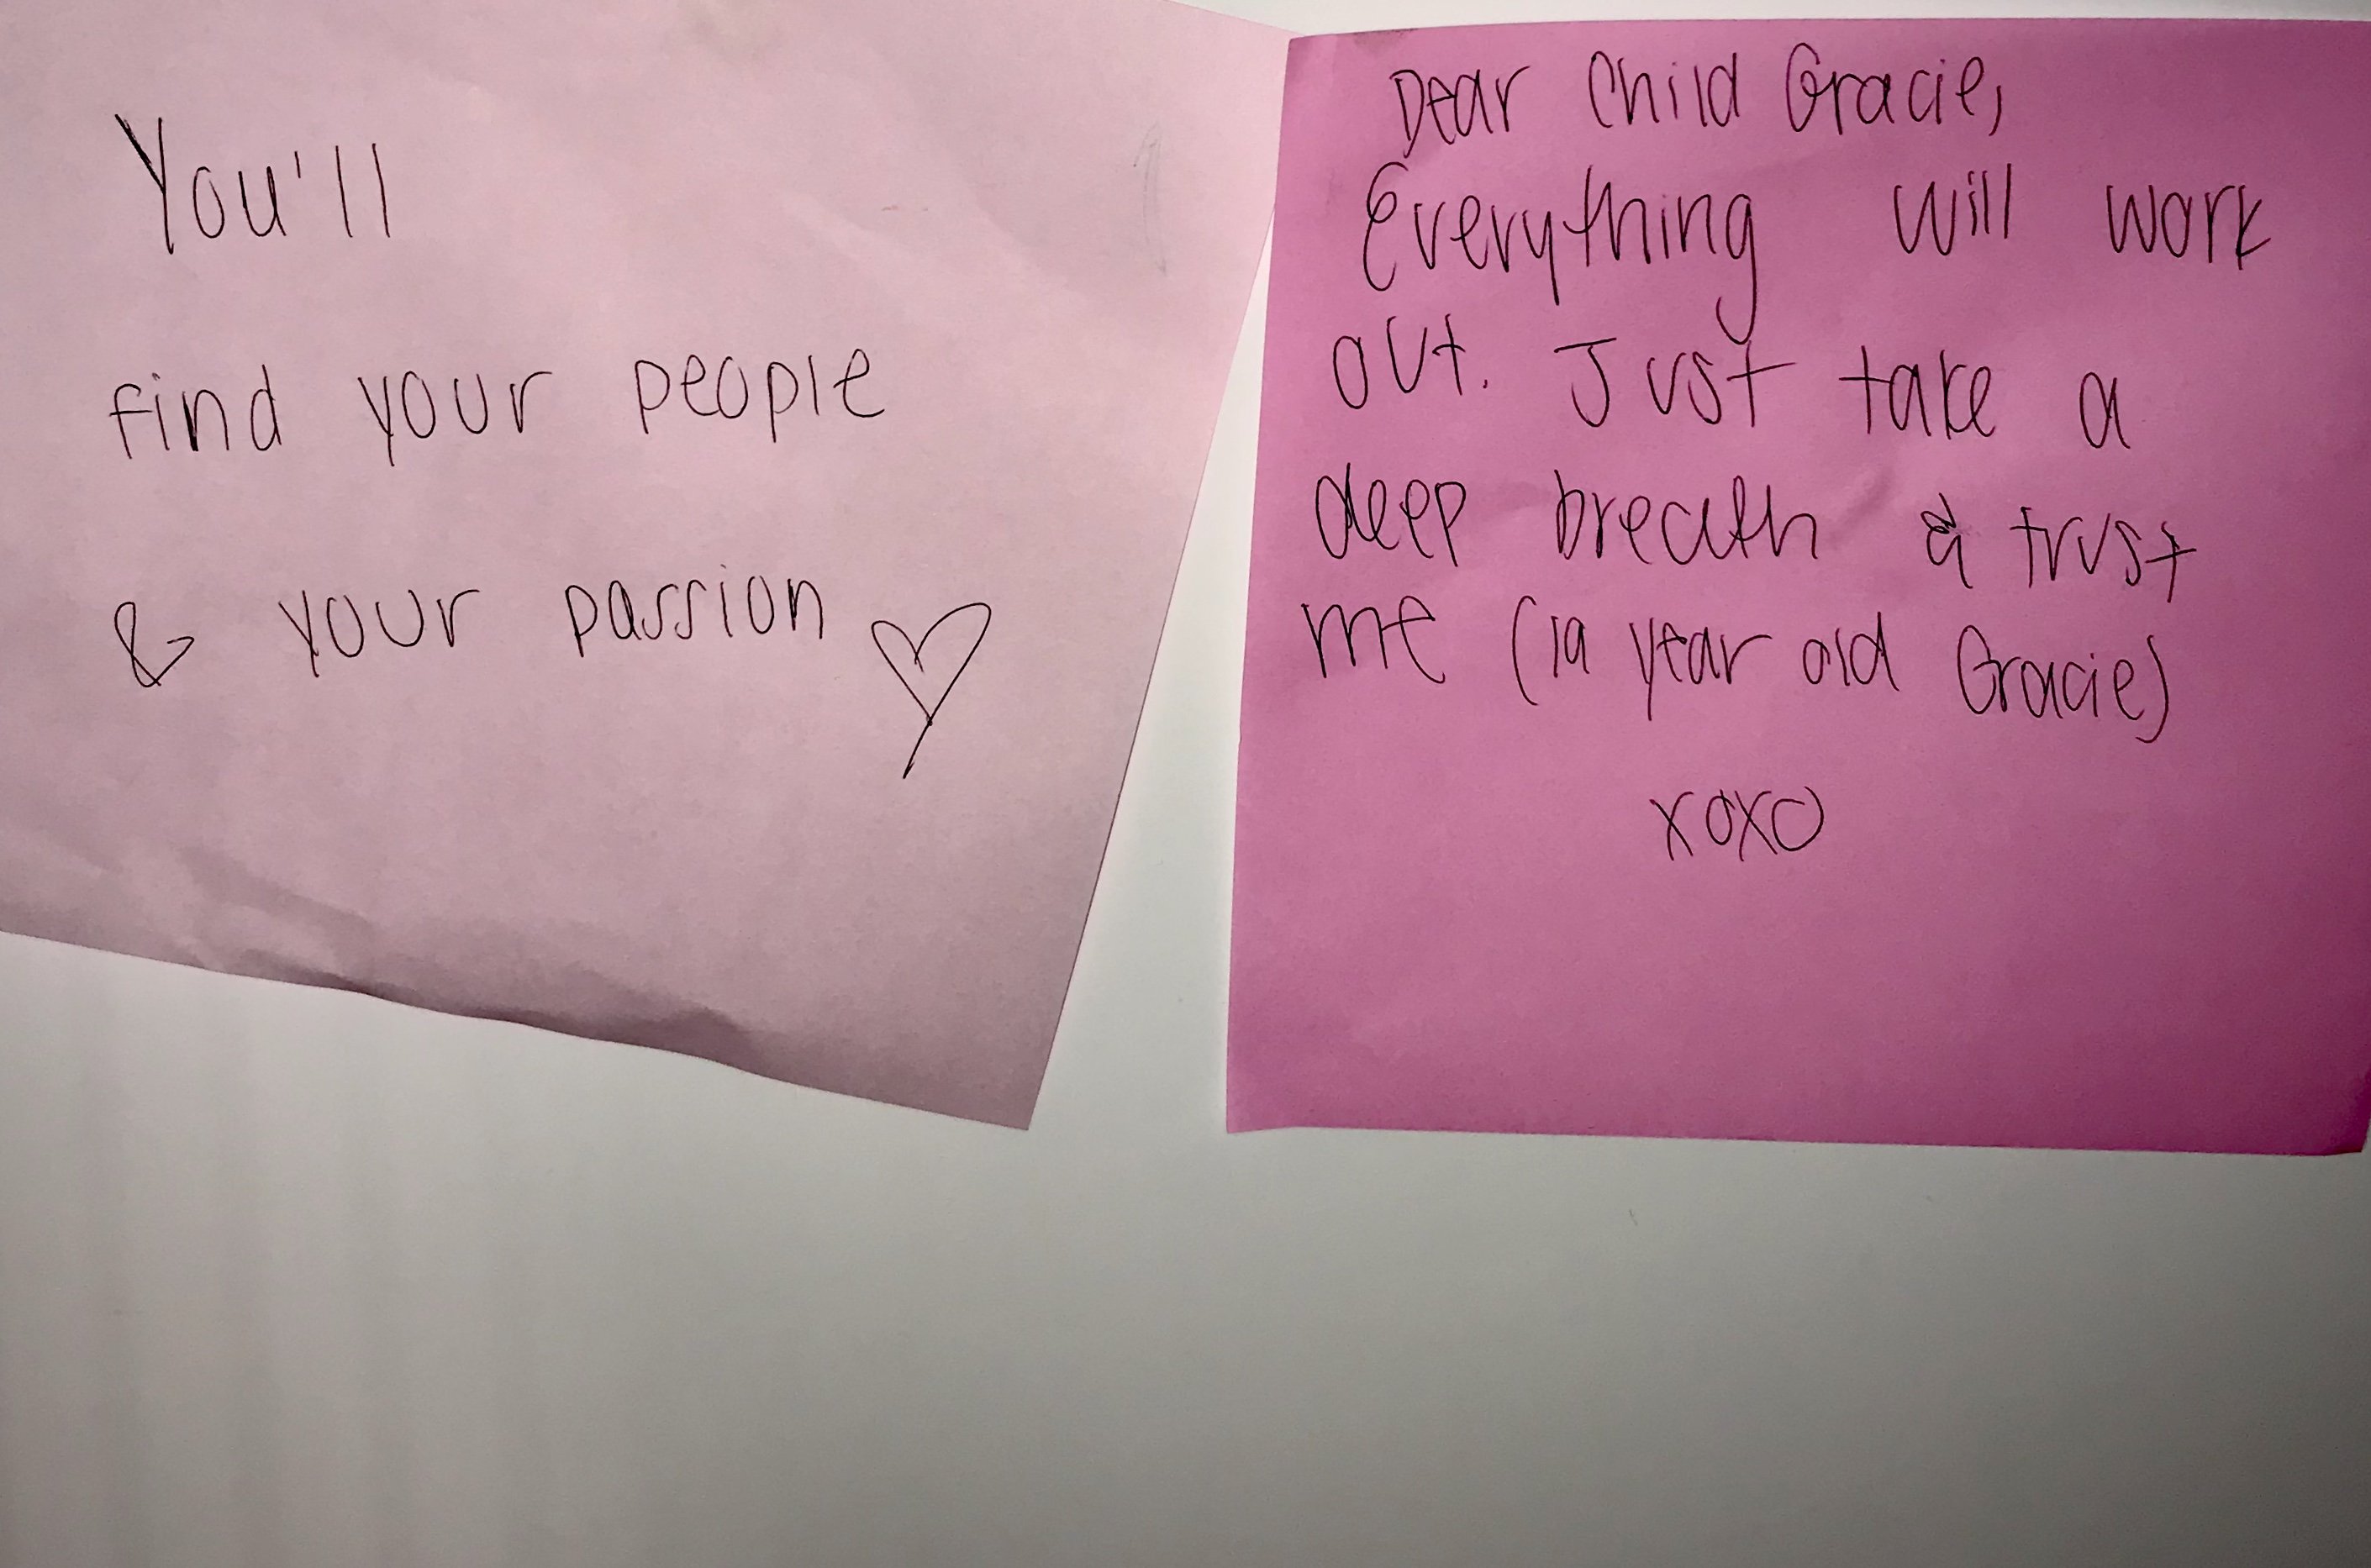 You'll
find your people
& your passion
Dear Child Gracie,
Everything will work
out. Just take a
deep breath & trust
me (19 year old Gracie)
xoxo